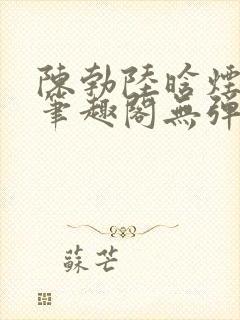 陳勃陸晗煙
筆趣閣無彈
蘇芒